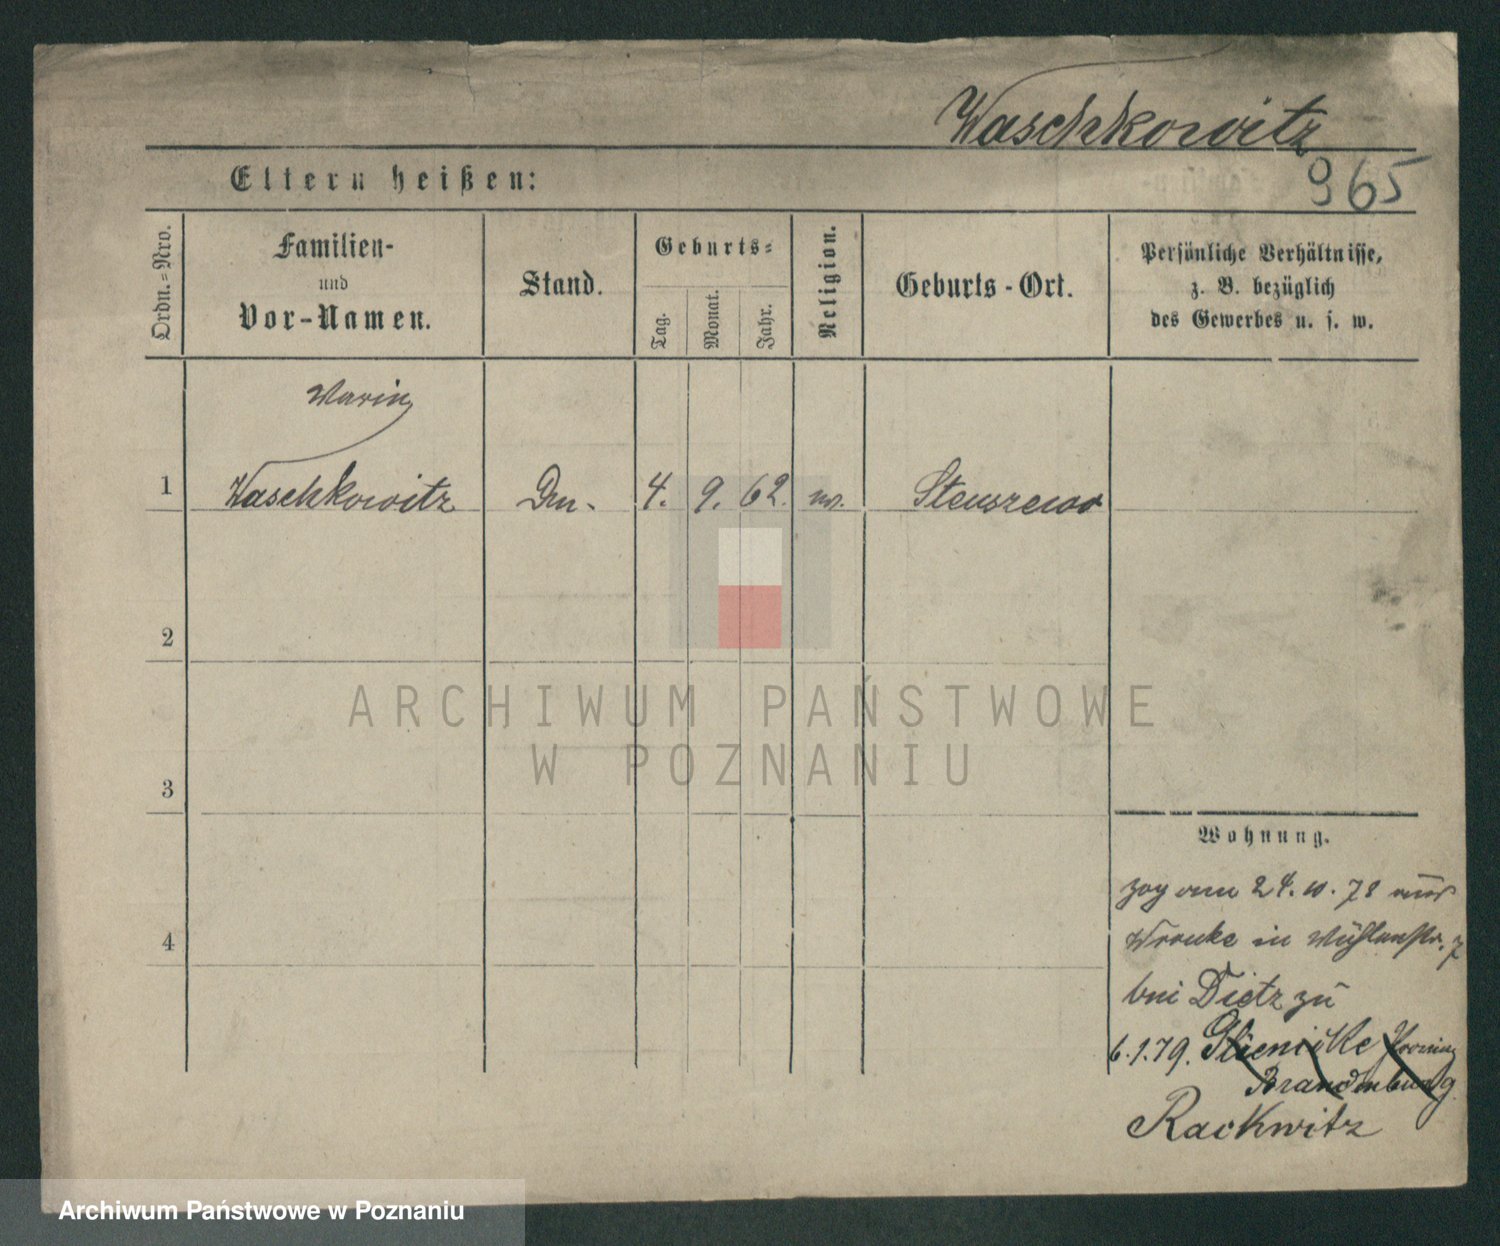 Waschkowitz
965
Eltern heißen:
Ordn.=Nro.
Familien-
und
Vor-Namen.
Stand.
Geburts=
Tag.
Monat.
Jahr.
Religion.
Geburts-Ort.
Persönliche Verhältnisse,
z. B. bezüglich
des Gewerbes u. s. w.
1
Waschkowitz
4. 9. 62.
Stenszewo
2
3
4
Wohnung.
zog am 24.10.78 aus
Wronke in Mühlenstr. 7
bei Dietz zu
6.1.79. Glienicke Provinz
Brandenburg
Rackwitz
ARCHIWUM PAŃSTWOWE
W POZNANIU
Archiwum Państwowe w Poznaniu